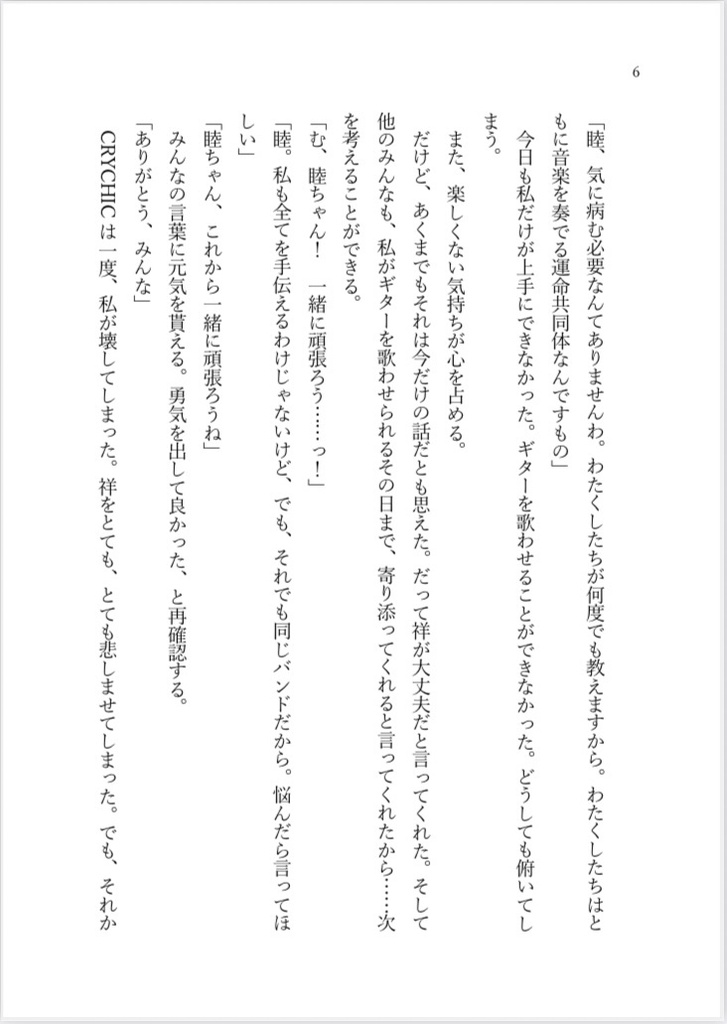 6
「睦、気に病む必要なんてありませんわ。わたくしたちが何度でも教えますから。わたくしたちはと
もに音楽を奏でる運命共同体なんですもの」
　今日も私だけが上手にできなかった。ギターを歌わせることができなかった。どうしても俯いてし
まう。
　また、楽しくない気持ちが心を占める。
　だけど、あくまでもそれは今だけの話だとも思えた。だって祥が大丈夫だと言ってくれた。そして
他のみんなも、私がギターを歌わせられるその日まで、寄り添ってくれると言ってくれたから……次
を考えることができる。
「む、睦ちゃん！　一緒に頑張ろう……っ！」
「睦。私も全てを手伝えるわけじゃないけど、でも、それでも同じバンドだから。悩んだら言ってほ
しい」
「睦ちゃん、これから一緒に頑張ろうね」
　みんなの言葉に元気を貰える。勇気を出して良かった、と再確認する。
「ありがとう、みんな」
　CRYCHICは一度、私が壊してしまった。祥をとても、とても悲しませてしまった。でも、それか